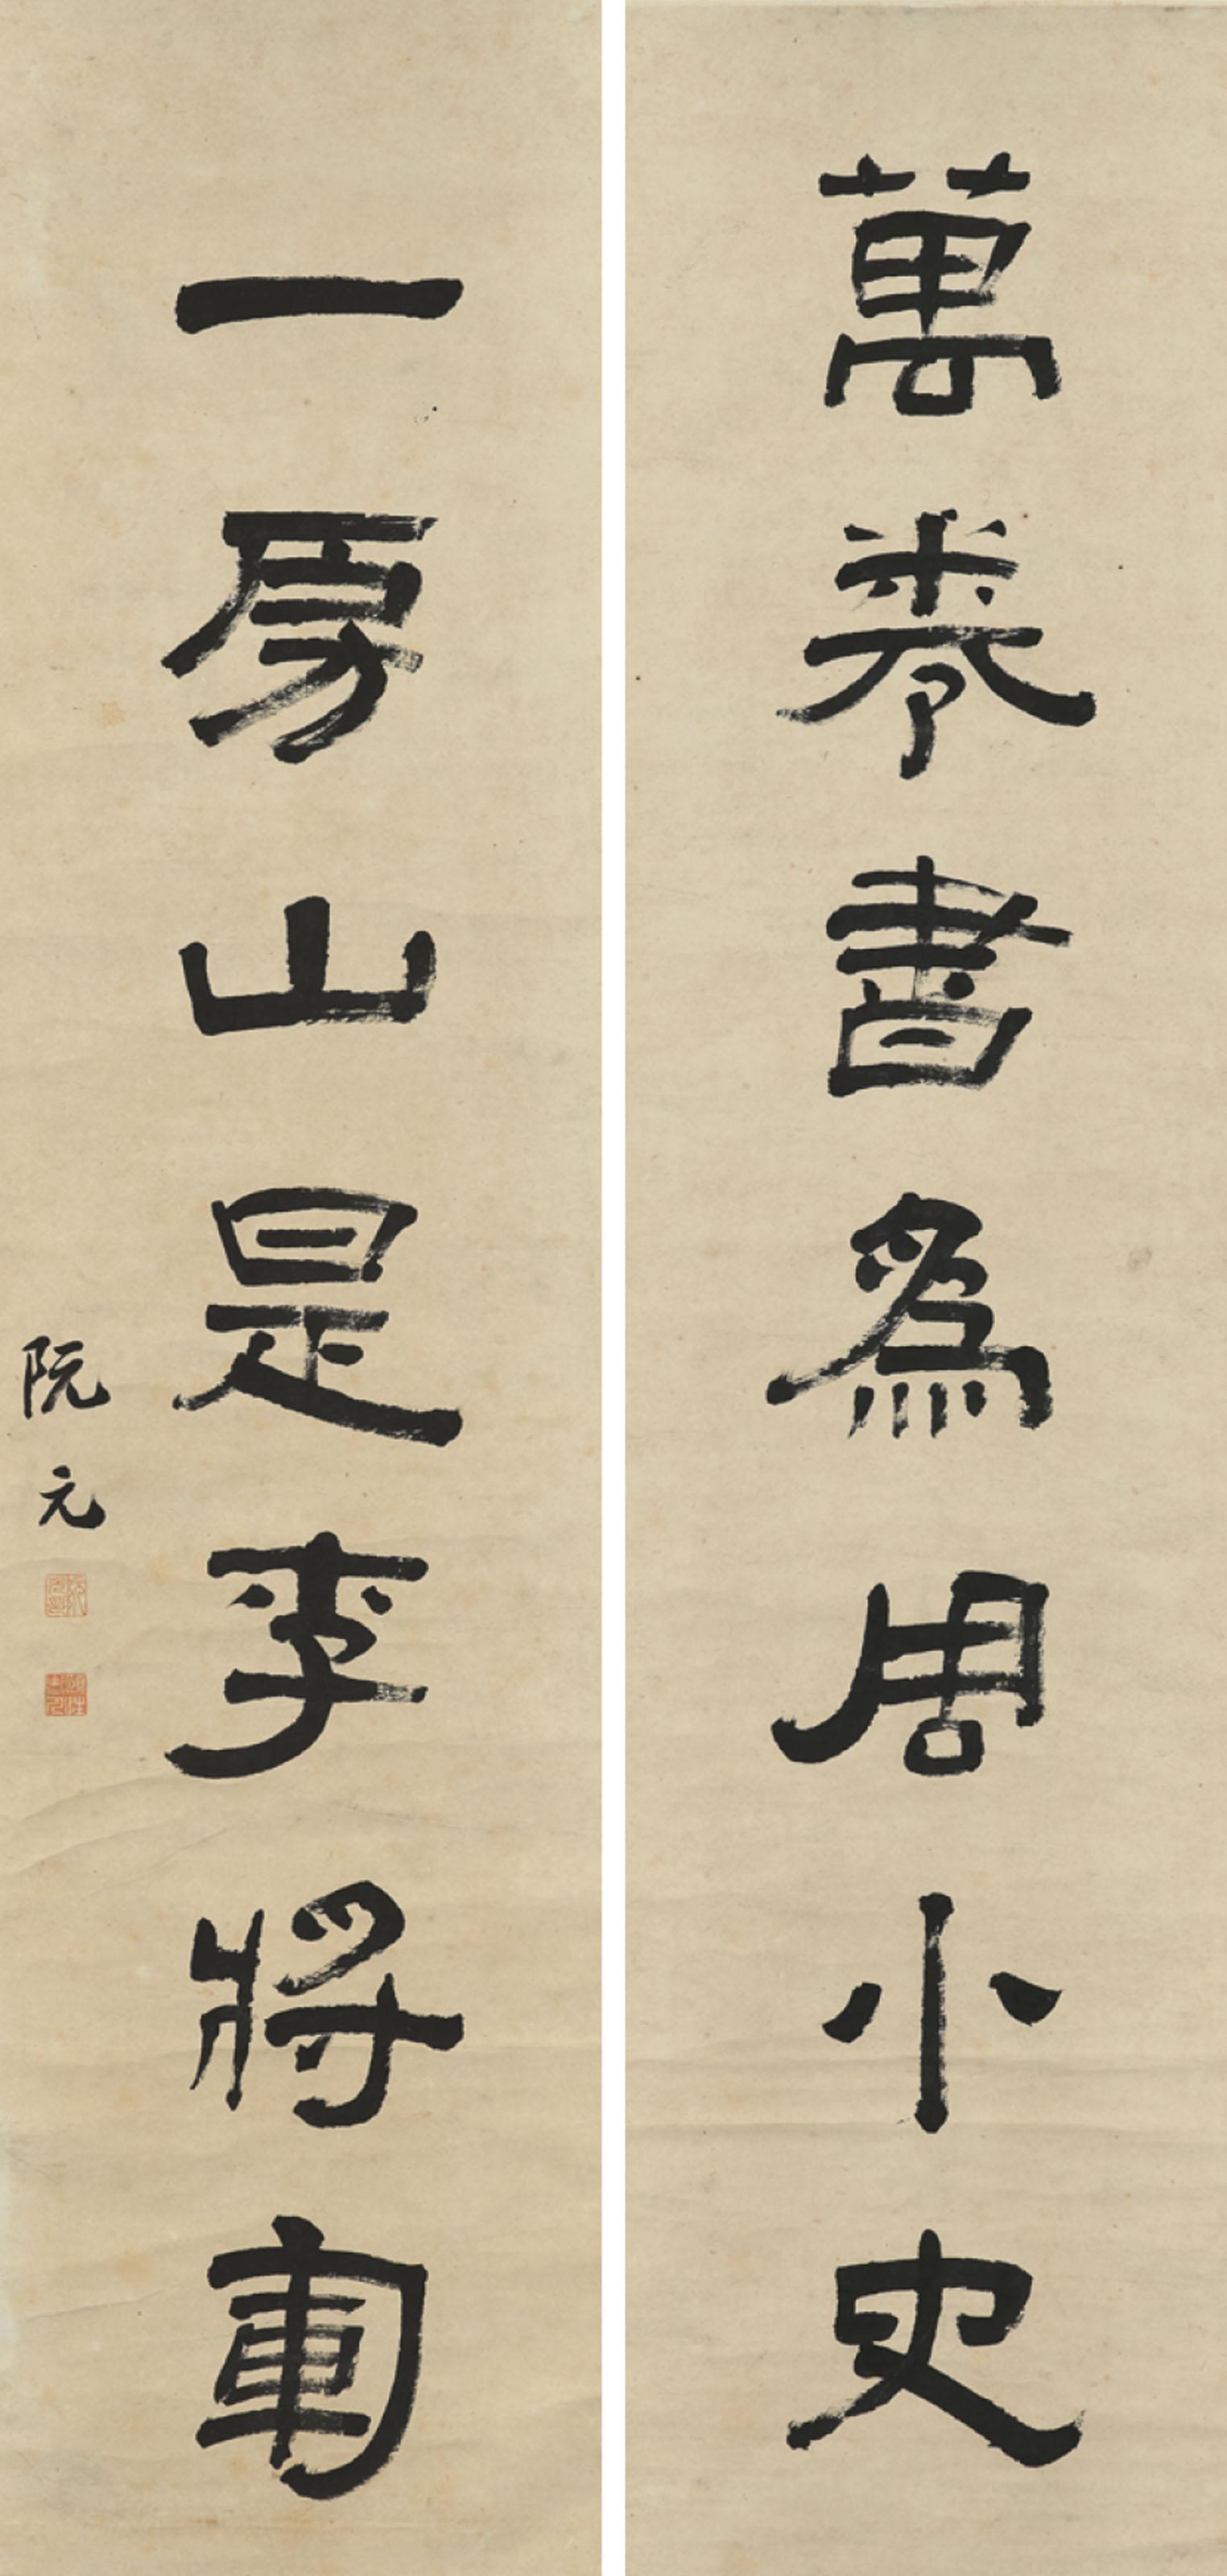 萬卷書爲周小史
一房山是李將軍
阮元